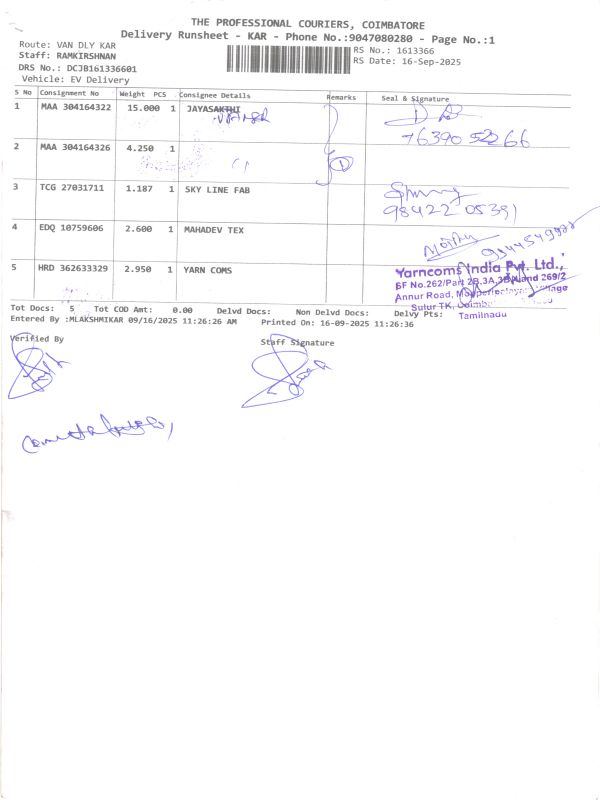 THE PROFESSIONAL COURIERS, COIMBATORE
Delivery Runsheet - KAR - Phone No.:9047080280 - Page No.:1
Route: VAN DLY KAR
RS No.: 1613366
Staff: RAMKIRSHNAN
RS Date: 16-Sep-2025
DRS No.: DCJB161336601
Vehicle: EV Delivery
S No Consignment No Weight PCS Consignee Details Remarks Seal & Signature
1 MAA 304164322 15.000 1 JAYASAKTHI
2 MAA 304164326 4.250 1
3 TCG 27031711 1.187 1 SKY LINE FAB
98422 05391
4 EDQ 10759606 2.600 1 MAHADEV TEX
5 HRD 362633329 2.950 1 YARN COMS
Yarncoms India Pvt. Ltd.,
Annur Road,
Sulur TK,
Tamilnadu
Tot Docs: 5 Tot COD Amt: 0.00 Delvd Docs: Non Delvd Docs: Delvy Pts:
Entered By :MLAKSHMIKAR 09/16/2025 11:26:26 AM Printed On: 16-09-2025 11:26:36
Verified By
Staff Signature